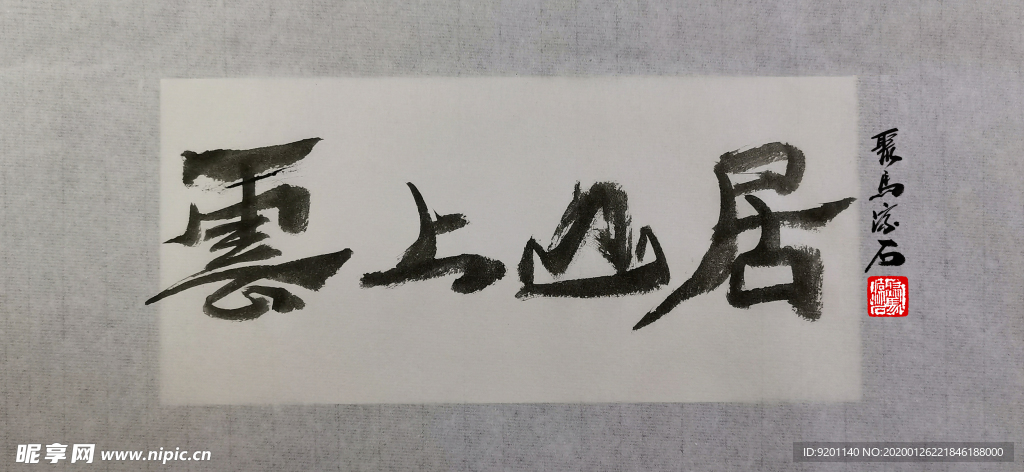 雲上山居
聚馬流石
昵享网 www.nipic.cn
ID:9201140 NO:20200126221846188000